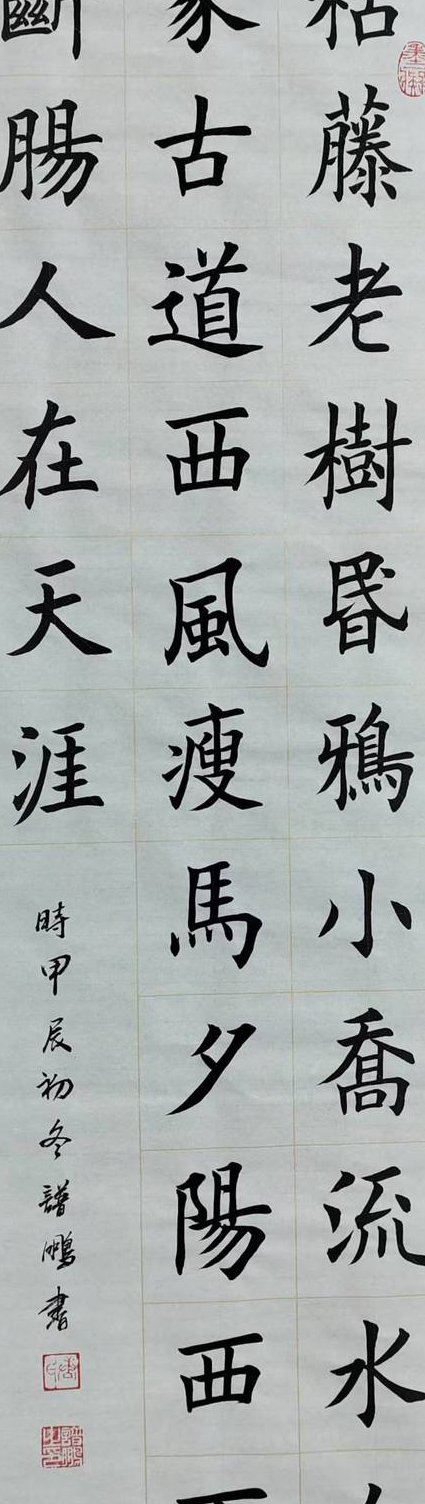 枯藤老樹昏鴉小喬流水
家古道西風瘦馬夕陽西
斷腸人在天涯
時甲辰初冬譜鵬書